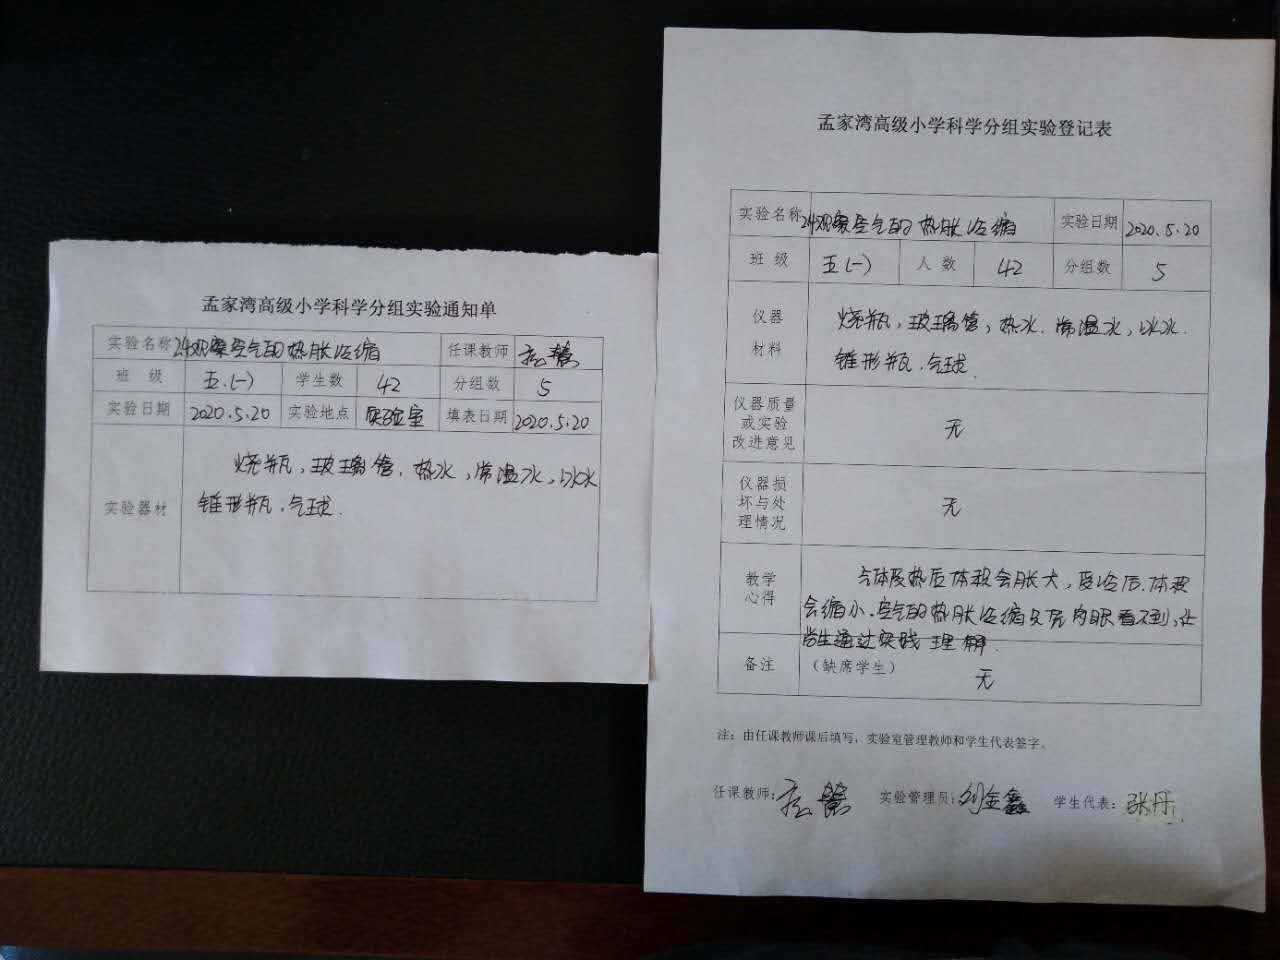 孟家湾高级小学科学分组实验通知单
实验名称 24观察空气的热胀冷缩 任课教师
班 级 五.(一) 学生数 42 分组数 5
实验日期 2020.5.20 实验地点 实验室 填表日期 2020.5.20
实验器材
烧瓶，玻璃管，热水，常温水，冰水
锥形瓶，气球.
孟家湾高级小学科学分组实验登记表
实验名称 24观察空气的热胀冷缩 实验日期 2020.5.20
班 级 五(一) 人 数 42 分组数 5
仪器
材料
烧瓶，玻璃管，热水.常温水，冰水.
锥形瓶.气球.
仪器质量
或实验
改进意见
无
仪器损
坏与处
理情况
无
教学
心得
气体受热后体积会胀大，受冷后.体积
会缩小.空气的热胀冷缩只是肉眼看不到，让
学生通过实践理解.
备注 （缺席学生） 无
注：由任课教师课后填写，实验室管理教师和学生代表签字。
任课教师： 实验管理员：刘金鑫 学生代表：张丹